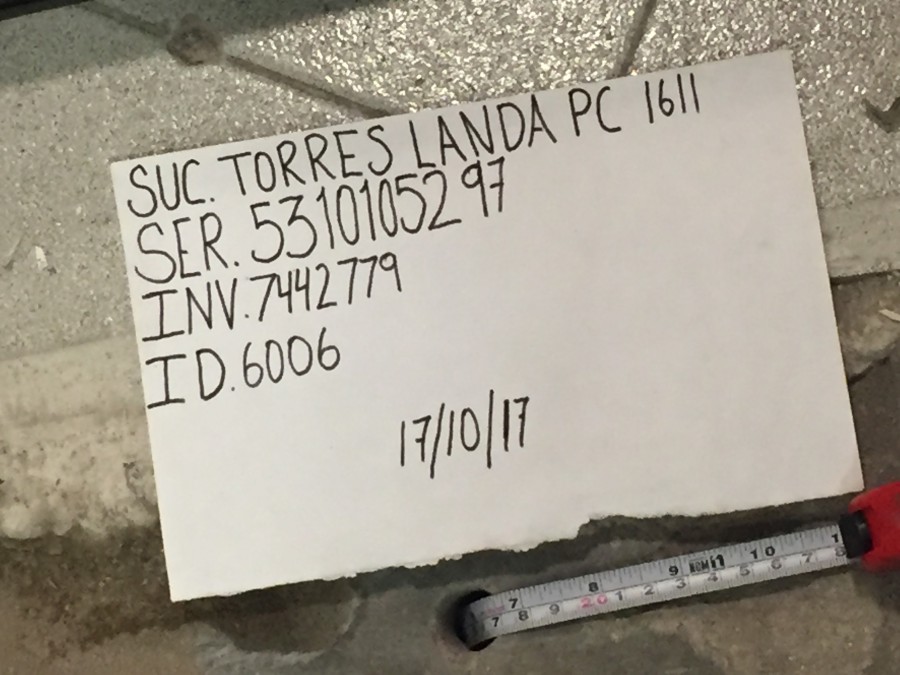 SUC. TORRES LANDA PC 1611
SER. 5310105297
INV. 7442779
ID. 6006
17/10/17
7 8 9 10
7 8 9 20 1 2 3 4 5 6 7 8